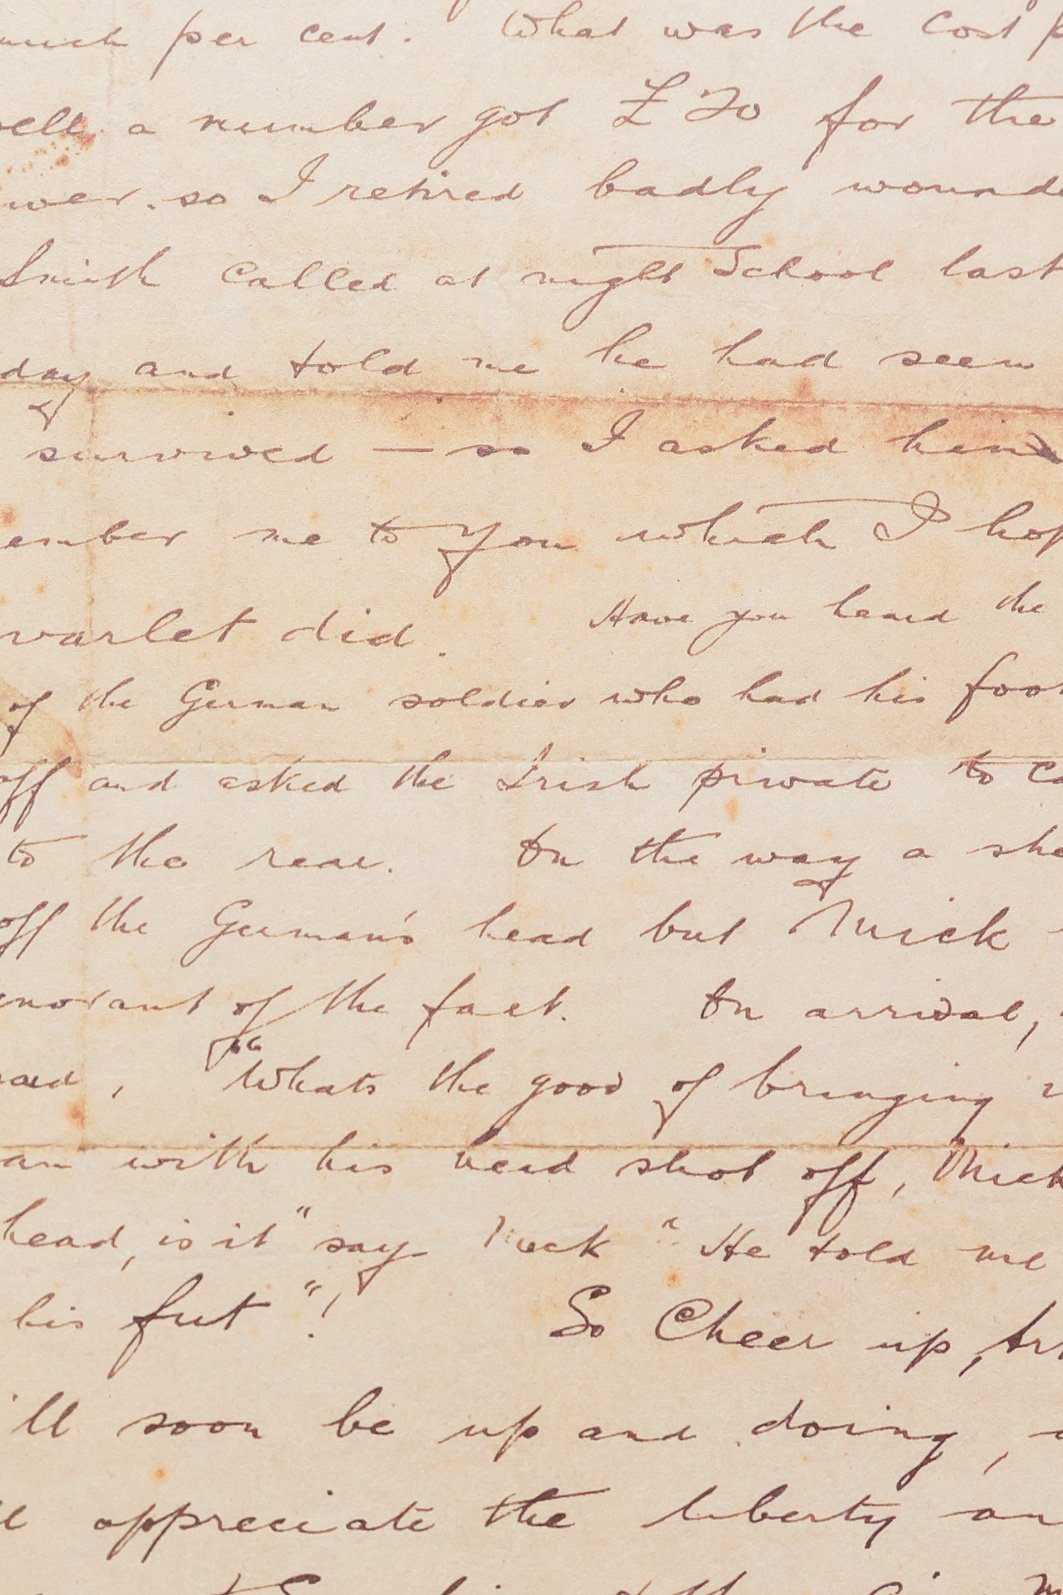 much per cent. What was the Cost p
sell, a number got £70 for the
wer. so I retired badly wounde
Smith Called at night School last
day and told me he had seen
survived — so I asked him
ember me to you which I hop
varlet did. Have you heard the
of the German soldier who had his foot
off and asked the Irish private to ca
to the rear. On the way a she
off the German's head but Mick
gnorant of the fact. On arrival,
said, "Whats the good of bringing
an with his head shot off, Mick
head, is it" say Mick "He told me
his fut"! So Cheer up, Art
'll soon be up and doing,
appreciate the liberty an